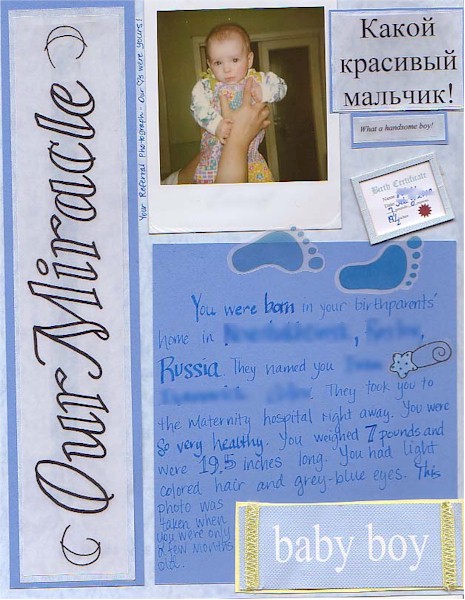 Our Miracle
Your Referral Photograph - Our ♡s were yours!
Какой
красивый
мальчик!
What a handsome boy!
Birth Certificate
Name
Date
You were born in your birthparents'
home in
Russia. They named you
They took you to
the maternity hospital right away. You were
so very healthy. You weighed 7 pounds and
were 19.5 inches long. You had light
colored hair and grey-blue eyes. This
photo was
taken when
you were only
a few months
old.
baby boy